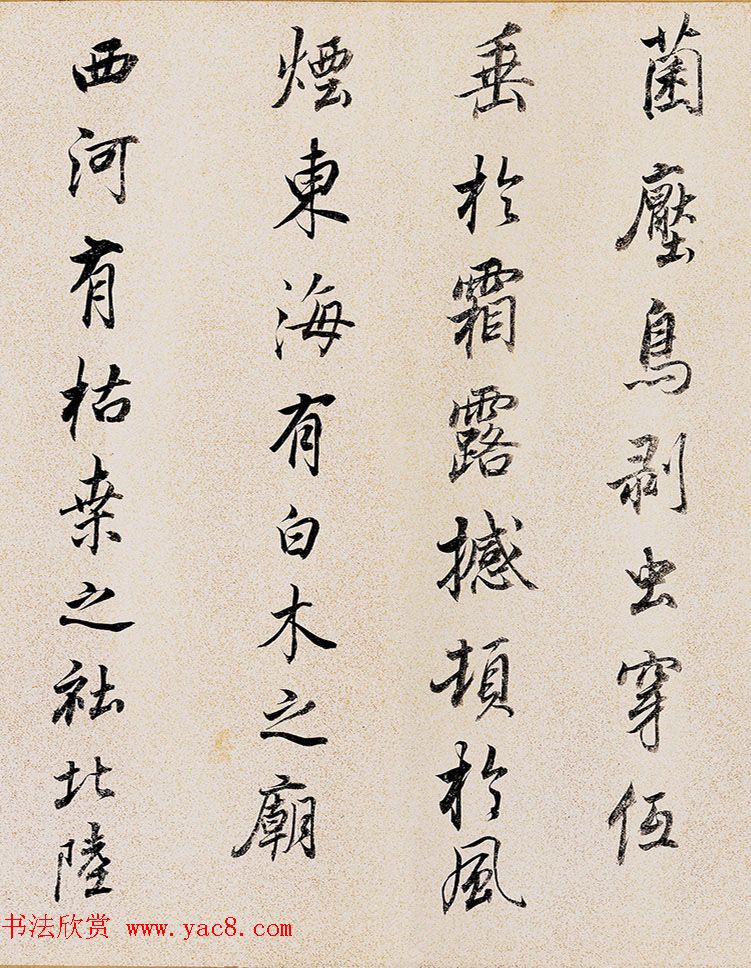 菌壓鳥剥虫穿低
垂於霜露撼頓於風
煙東海有白木之廟
西河有枯桒之社北陸
书法欣赏 www.yac8.com